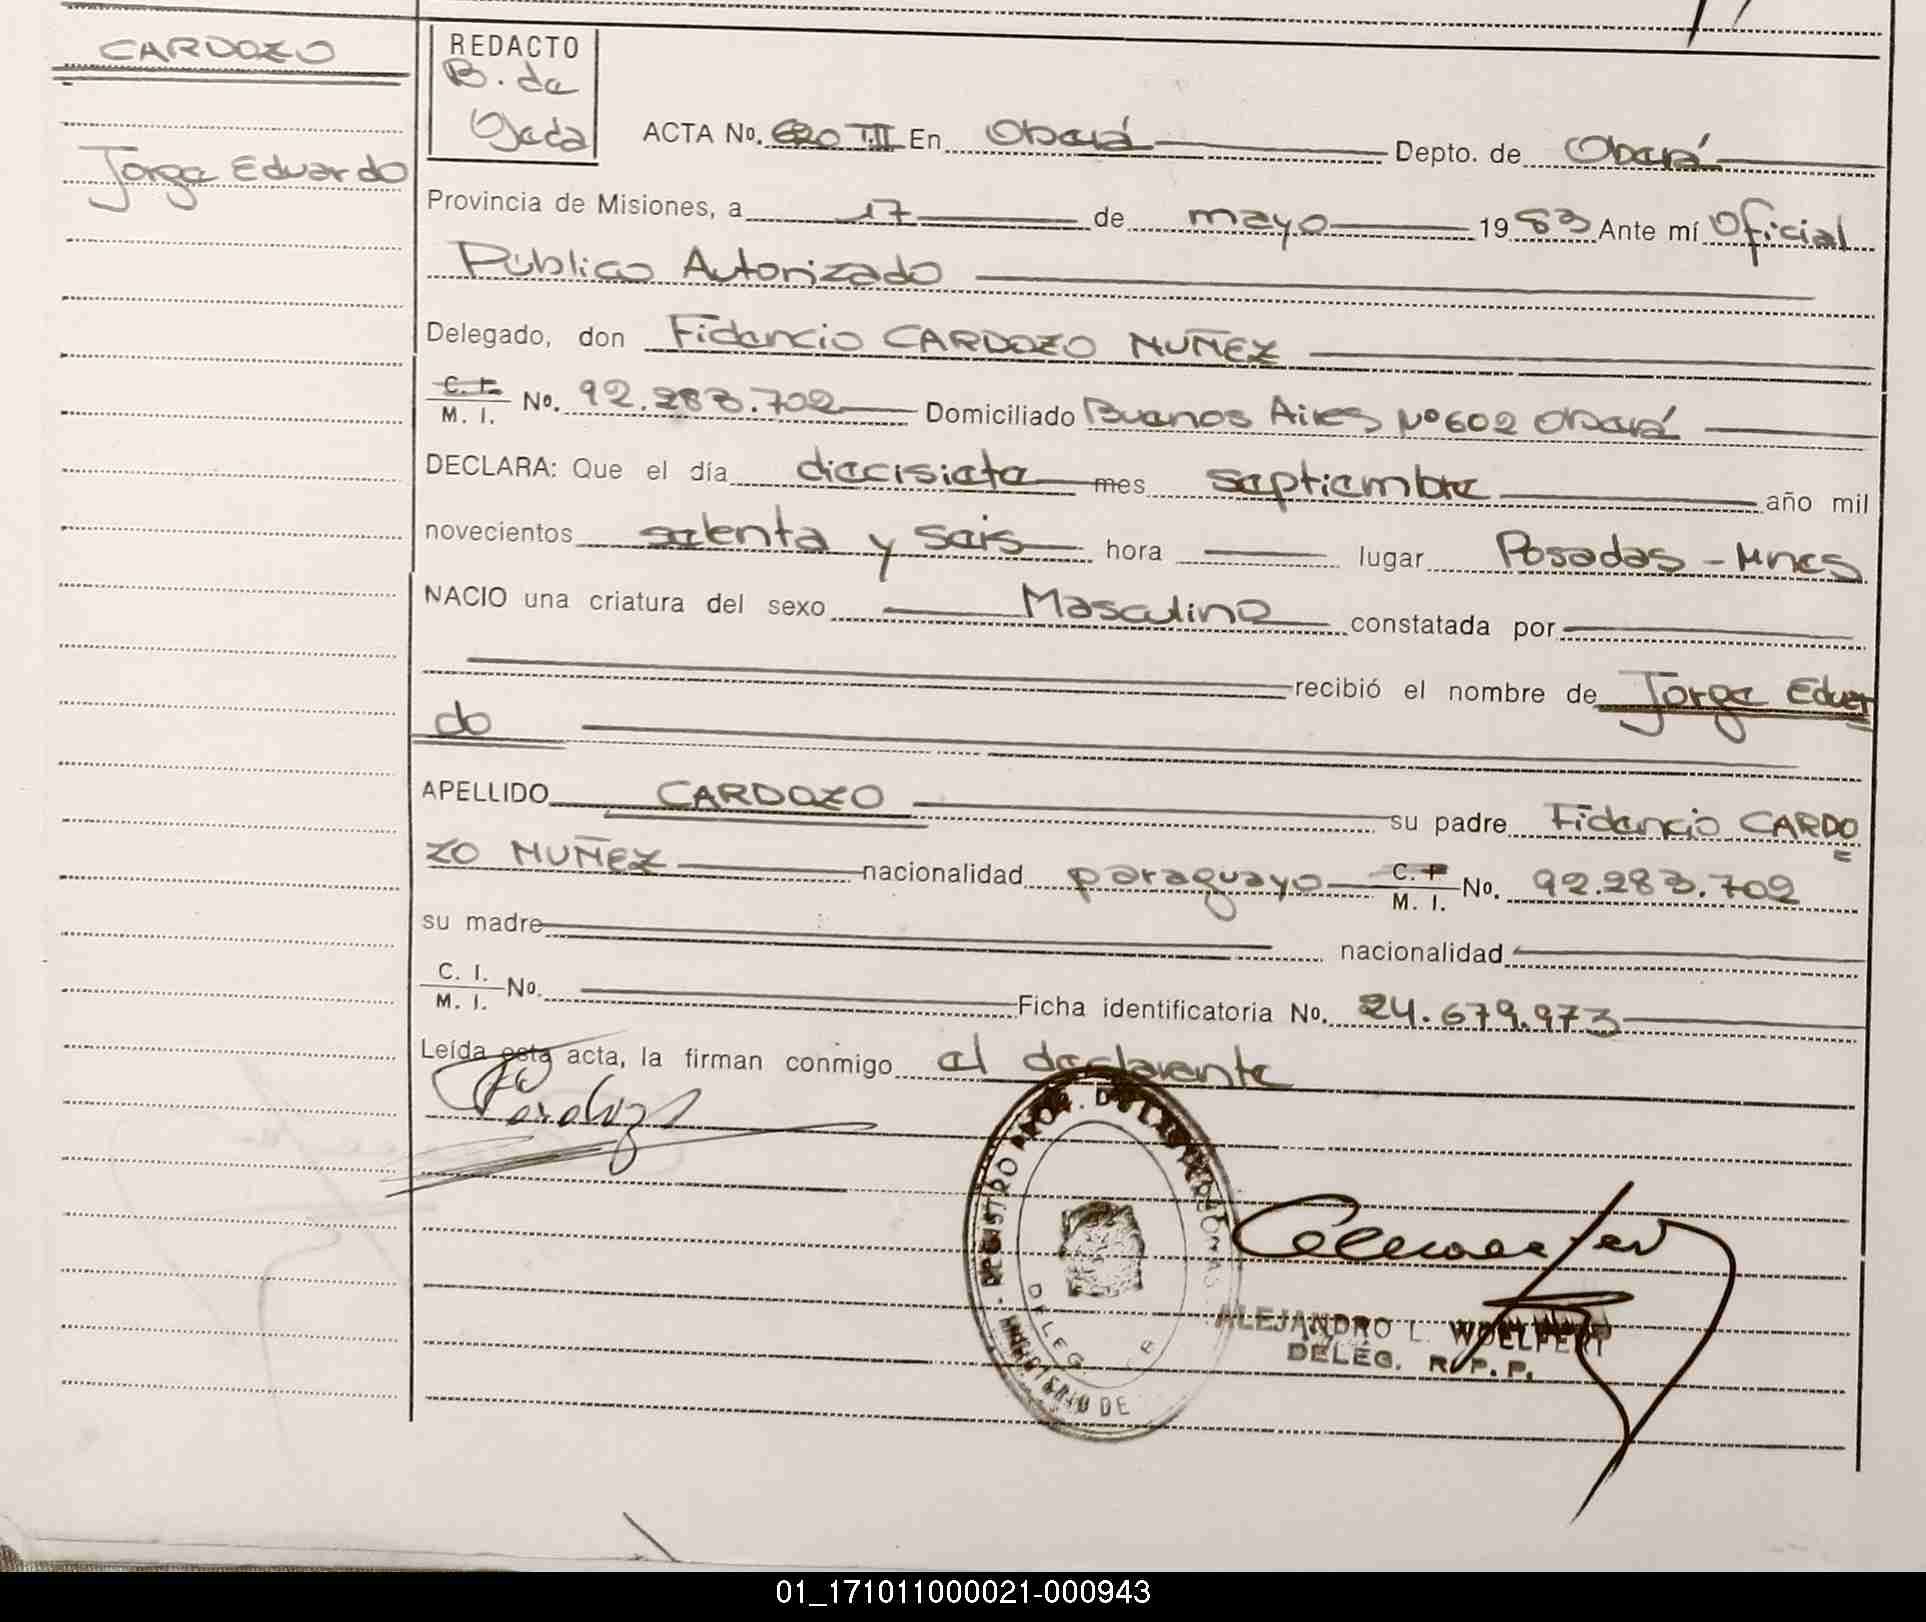 CARDOZO
Jorge Eduardo
REDACTO
B. de
Ojeda
ACTA No. 620 T.II En Oberá Depto. de Oberá
Provincia de Misiones, a 17 de mayo 1983 Ante mí Oficial
Público Autorizado
Delegado, don Fidencio CARDOZO NUÑEZ
C. I. M. I. No. 92.283.702 Domiciliado Buenos Aires Nº 602 Oberá
DECLARA: Que el día diecisiete mes septiembre año mil
novecientos setenta y seis hora lugar Posadas - Mnes
NACIO una criatura del sexo Masculino constatada por
recibió el nombre de Jorge Eduar
do
APELLIDO CARDOZO su padre Fidencio CARDO
ZO NUÑEZ nacionalidad paraguayo C. I. M. I. No. 92.283.702
su madre nacionalidad
C. I. M. I. No. Ficha identificatoria No. 24.679.973
Leída esta acta, la firman conmigo el declarante
REGISTRO PROV. DE LAS PERSONAS
DELEG.
MINISTERIO DE
ALEJANDRO L. WOELFERT
DELEG. R. P. P.
01_171011000021-000943